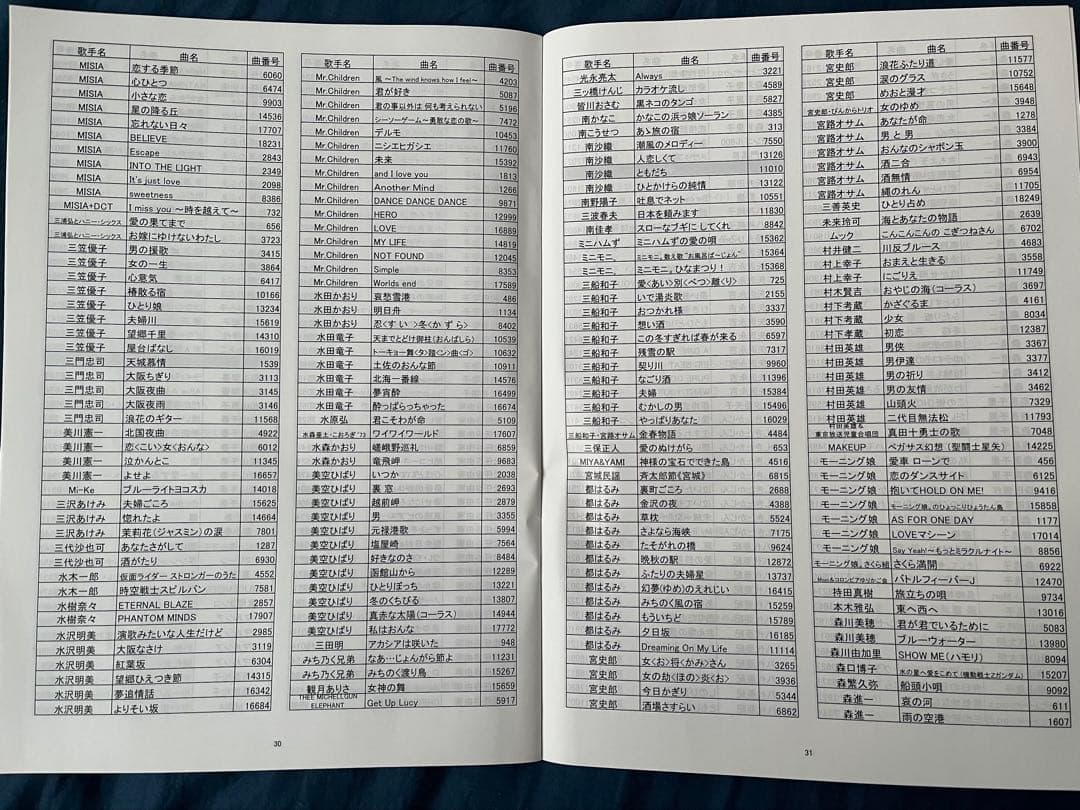 歌手名 曲名 曲番号
MISIA 恋する季節 6060
MISIA 心ひとつ 6474
MISIA 小さな恋 9903
MISIA 星の降る丘 14536
MISIA 忘れない日々 17707
MISIA BELIEVE 18231
MISIA Escape 2843
MISIA INTO THE LIGHT 2349
MISIA It's just love 2098
MISIA sweetness 8386
MISIA+DCT I miss you ～時を越えて～ 732
三浦弘とハニー・シックス 愛の果てまで 656
三浦弘とハニー・シックス お嫁にゆけないわたし 3723
三笠優子 男の援歌 3415
三笠優子 女の一生 3864
三笠優子 心意気 6417
三笠優子 椿散る宿 10166
三笠優子 ひとり娘 13234
三笠優子 夫婦川 15619
三笠優子 望郷千里 14310
三笠優子 屋台ばなし 16019
三門忠司 天城慕情 1539
三門忠司 大阪ちぎり 3113
三門忠司 大阪夜曲 3145
三門忠司 大阪夜雨 3146
三門忠司 浪花のギター 11568
美川憲一 北国夜曲 4922
美川憲一 恋<こい>女<おんな> 6012
美川憲一 泣かんとこ 11345
美川憲一 よせよ 16657
Mi-Ke ブルーライトヨコスカ 14018
三沢あけみ 夫婦ごころ 15625
三沢あけみ 惚れたよ 14664
三沢あけみ 茉莉花(ジャスミン)の涙 7801
三代沙也可 あなたさがして 1287
三代沙也可 酒がたり 6930
水木一郎 仮面ライダー ストロンガーのうた 4552
水木一郎 時空戦士スピルバン 7581
水樹奈々 ETERNAL BLAZE 2857
水樹奈々 PHANTOM MINDS 17907
水沢明美 演歌みたいな人生だけど 2985
水沢明美 大阪なさけ 3119
水沢明美 紅葉坂 6304
水沢明美 望郷ひえつき節 14315
水沢明美 夢追情話 16342
水沢明美 よりそい坂 16684
30
歌手名 曲名 曲番号
Mr.Children 風 ～The wind knows how I feel～ 4203
Mr.Children 君が好き 5087
Mr.Children 君の事以外は 何も考えられない 5196
Mr.Children シーソーゲーム～勇敢な恋の歌～ 7472
Mr.Children デルモ 10453
Mr.Children ニシエヒガシエ 11760
Mr.Children 未来 15392
Mr.Children and I love you 1813
Mr.Children Another Mind 1266
Mr.Children DANCE DANCE DANCE 9871
Mr.Children HERO 12999
Mr.Children LOVE 16889
Mr.Children MY LIFE 14819
Mr.Children NOT FOUND 12045
Mr.Children Simple 8353
Mr.Children Worlds end 17589
水田かおり 哀愁雪港 486
水田かおり 明日舟 1134
水田かおり 忍<す い >冬<か ずら> 8402
水田竜子 天までとどけ御柱(おんばしら) 10539
水田竜子 トーキョー舞<タ>踏<ン>曲<ゴ> 10632
水田竜子 土佐のおんな節 10911
水田竜子 北海一番線 14576
水田竜子 夢宵酔 16499
水田竜子 酔っぱらっちゃった 16674
水原弘 君こそわが命 5109
水森亜土・こおろぎ'73 ワイワイワールド 17607
水森かおり 嵯峨野巡礼 6859
水森かおり 竜飛岬 9683
美空ひばり いつか 2038
美空ひばり 裏窓 2693
美空ひばり 越前岬 2879
美空ひばり 男 3355
美空ひばり 元禄港歌 5994
美空ひばり 塩屋崎 7564
美空ひばり 好きなのさ 8484
美空ひばり 函館山から 12289
美空ひばり ひとりぼっち 13221
美空ひばり 冬のくちびる 13807
美空ひばり 真赤な太陽(コーラス) 14944
美空ひばり 私はおんな 17772
三田明 アカシアは咲いた 948
みち乃く兄弟 なあ…じょんがら節よ 11231
みち乃く兄弟 みちのく渡り鳥 15267
観月ありさ 女神の舞 15659
THEE MICHELLGUN ELEPHANT Get Up Lucy 5917
歌手名 曲名 曲番号
光永亮太 Always 3221
三ッ橋けんじ カラオケ流し 4589
皆川おさむ 黒ネコのタンゴ 5827
南かなこ かなこの浜っ娘ソーラン 4385
南こうせつ あゝ旅の宿 313
南沙織 潮風のメロディー 7550
南沙織 人恋しくて 13126
南沙織 ともだち 11010
南沙織 ひとかけらの純情 13122
南野陽子 吐息でネット 10551
三波春夫 日本を頼みます 11830
南佳孝 スローなブギにしてくれ 8842
ミニハムず ミニハムずの愛の唄 15362
ミニモニ。 ミニモニ。数え歌"お風呂ば～じょん" 15364
ミニモニ。 ミニモニ。ひなまつり! 15368
三船和子 愛<あい>別<べつ>離<り> 725
三船和子 いで湯炎歌 2155
三船和子 おつかれ様 3337
三船和子 想い酒 3590
三船和子 この冬すぎれば春が来る 6597
三船和子 残雪の駅 7317
三船和子 契り川 9960
三船和子 なごり酒 11396
三船和子 夫婦 15384
三船和子 むかしの男 15496
三船和子 やっぱりあなた 16029
三船和子・宮路オサム 金春物語 4484
三保正人 愛のぬけがら 653
MIYA&YAMI 神様の宝石でできた島 4516
宮城民謡 斉太郎節《宮城》 6815
都はるみ 裏町ごころ 2688
都はるみ 金沢の夜 4388
都はるみ 草枕 5524
都はるみ さよなら海峡 7175
都はるみ たそがれの橋 9624
都はるみ 晩秋の駅 12872
都はるみ ふたりの夫婦星 13737
都はるみ 幻夢(ゆめ)のえれじい 16415
都はるみ みちのく風の宿 15259
都はるみ もういちど 15789
都はるみ 夕日坂 16185
都はるみ Dreaming On My Life 11114
宮史郎 女<お>将<かみ>さん 3265
宮史郎 女の劫<ほの>炎<お> 3936
宮史郎 今日かぎり 5344
宮史郎 酒場さすらい 6862
31
歌手名 曲名 曲番号
宮史郎 浪花ふたり道 11577
宮史郎 涙のグラス 10752
宮史郎 めおと漫才 15648
宮史郎・ぴんからトリオ 女のゆめ 3948
宮路オサム あなたが命 1278
宮路オサム 男と男 3384
宮路オサム おんなのシャボン玉 3900
宮路オサム 酒二合 6943
宮路オサム 酒無情 6954
宮路オサム 縄のれん 11705
三善英史 ひとり占め 18249
未来玲可 海とあなたの物語 2639
ムック こんこんこんの こぎつねさん 6702
村井健二 川反ブルース 4683
村上幸子 おまえと生きる 3558
村上幸子 にごりえ 11749
村木賢吉 おやじの海(コーラス) 3697
村下孝蔵 かざぐるま 4161
村下考蔵 少女 8034
村下孝蔵 初恋 12387
村田英雄 男侠 3367
村田英雄 男伊達 3377
村田英雄 男の祈り 3412
村田英雄 男の友情 3462
村田英雄 山頭火 7329
村田英雄 二代目無法松 11793
村田英雄& 東京放送児童合唱団 真田十勇士の歌 7048
MAKEUP ペガサス幻想 (聖闘士星矢) 14225
モーニング娘 愛車 ローンで 456
モーニング娘 恋のダンスサイト 6125
モーニング娘 抱いてHOLD ON ME! 9416
モーニング娘 モーニング娘。のひょっこりひょうたん島 15858
モーニング娘 AS FOR ONE DAY 1177
モーニング娘 LOVEマシーン 17014
モーニング娘 Say Yeah!～もっとミラクルナイト～ 8856
モーニング娘。さくら組 さくら満開 6922
バトルフィーバーJ 12470
持田真樹 旅立ちの唄 9734
本木雅弘 東へ西へ 13016
森川美穂 君が君でいるために 5083
森川美穂 ブルーウォーター 13980
森川由加里 SHOW ME(ハモリ) 8094
森口博子 水の星へ愛をこめて(機動戦士Zガンダム) 15207
森繁久弥 船頭小唄 9092
森進一 哀の河 611
森進一 雨の空港 1607